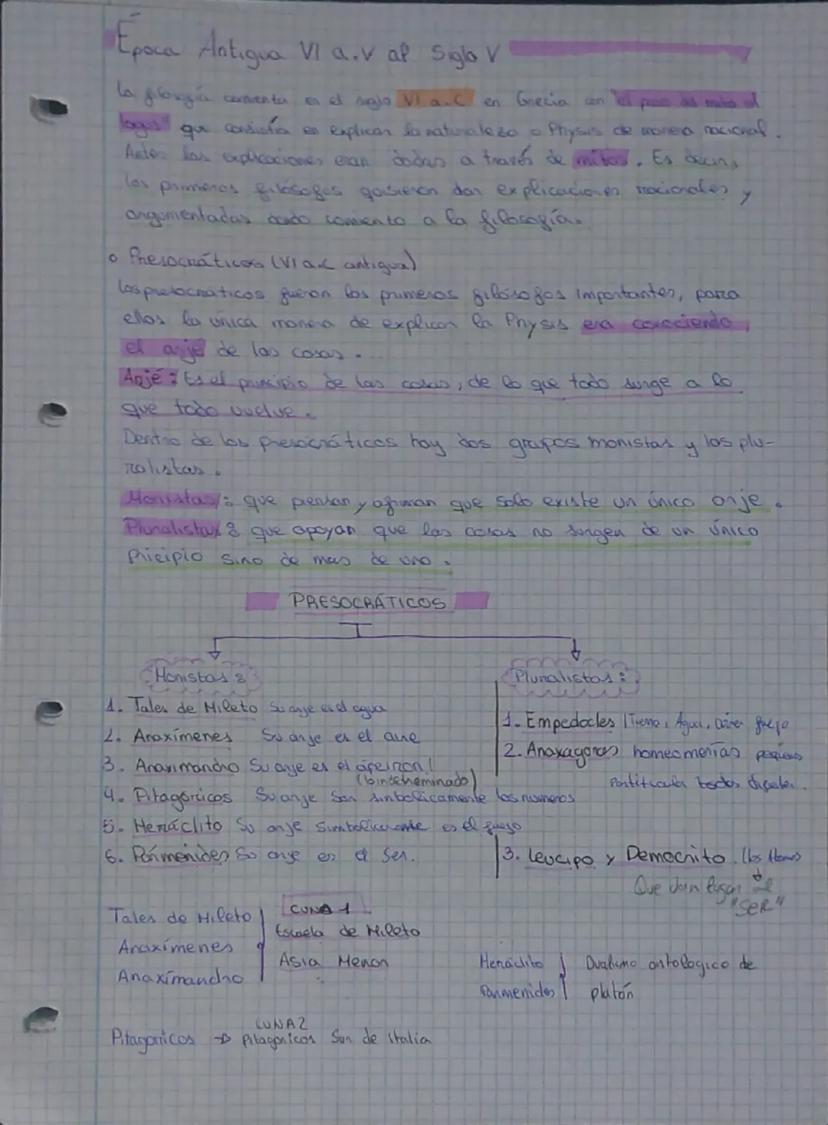 Época Antigua VI a.V al Siglo V
La filosofía comienta en el siglo VI a.C en Grecia con "el paso del mito al
logos" que consistía en explicar la naturaleza o Physis de manera racional.
Antes las explicaciones eran dadas a través de mitos. Es decir,
los primeros filósofos quisieron dar explicaciones racionales y
argumentadas dando comiento a la filosofía.
o Presocráticos (VI a.C antigua)
Los presocráticos fueron los primeros filósofos importantes, para
ellos la única manera de explicar la Physis era conociendo
el arjé de las cosas.
Arjé: Es el principio de las cosas, de lo que todo surge a lo
que todo vuelve.
Dentro de los presocráticos hay dos grupos monistas y los plu-
ralistas.
Monistas: que piensan y afirman que solo existe un único arje.
Pluralistas: que apoyan que las cosas no surgen de un único
pricipio sino de mas de uno.
PRESOCRÁTICOS
Monistas:
1. Tales de Mileto Su arje es el agua
2. Anaxímenes Su arje es el aire
3. Anaximandro Su arje es el ápeiron!
4. Pitagóricos Su arje son simbolicamente los numeros
5. Heráclito Su arje simbolicamente es el fuego
6. Parménides Su arje es el Ser.
Pluralistas:
1. Empedocles Agua, fuego
2. Anaxagoras homeomerías pequeñas
3. Leucipo y Democrito
Que dan lugar al
"SER"
Tales de Mileto
Anaxímenes
Anaximandro
CUNA 1
Escuela de Mileto
Asia Menor
Heráclito
Parmenides
Dualismo ontologico de
platón
CUNA 2
Pitagoricos → Pitagoricos Sur de Italia